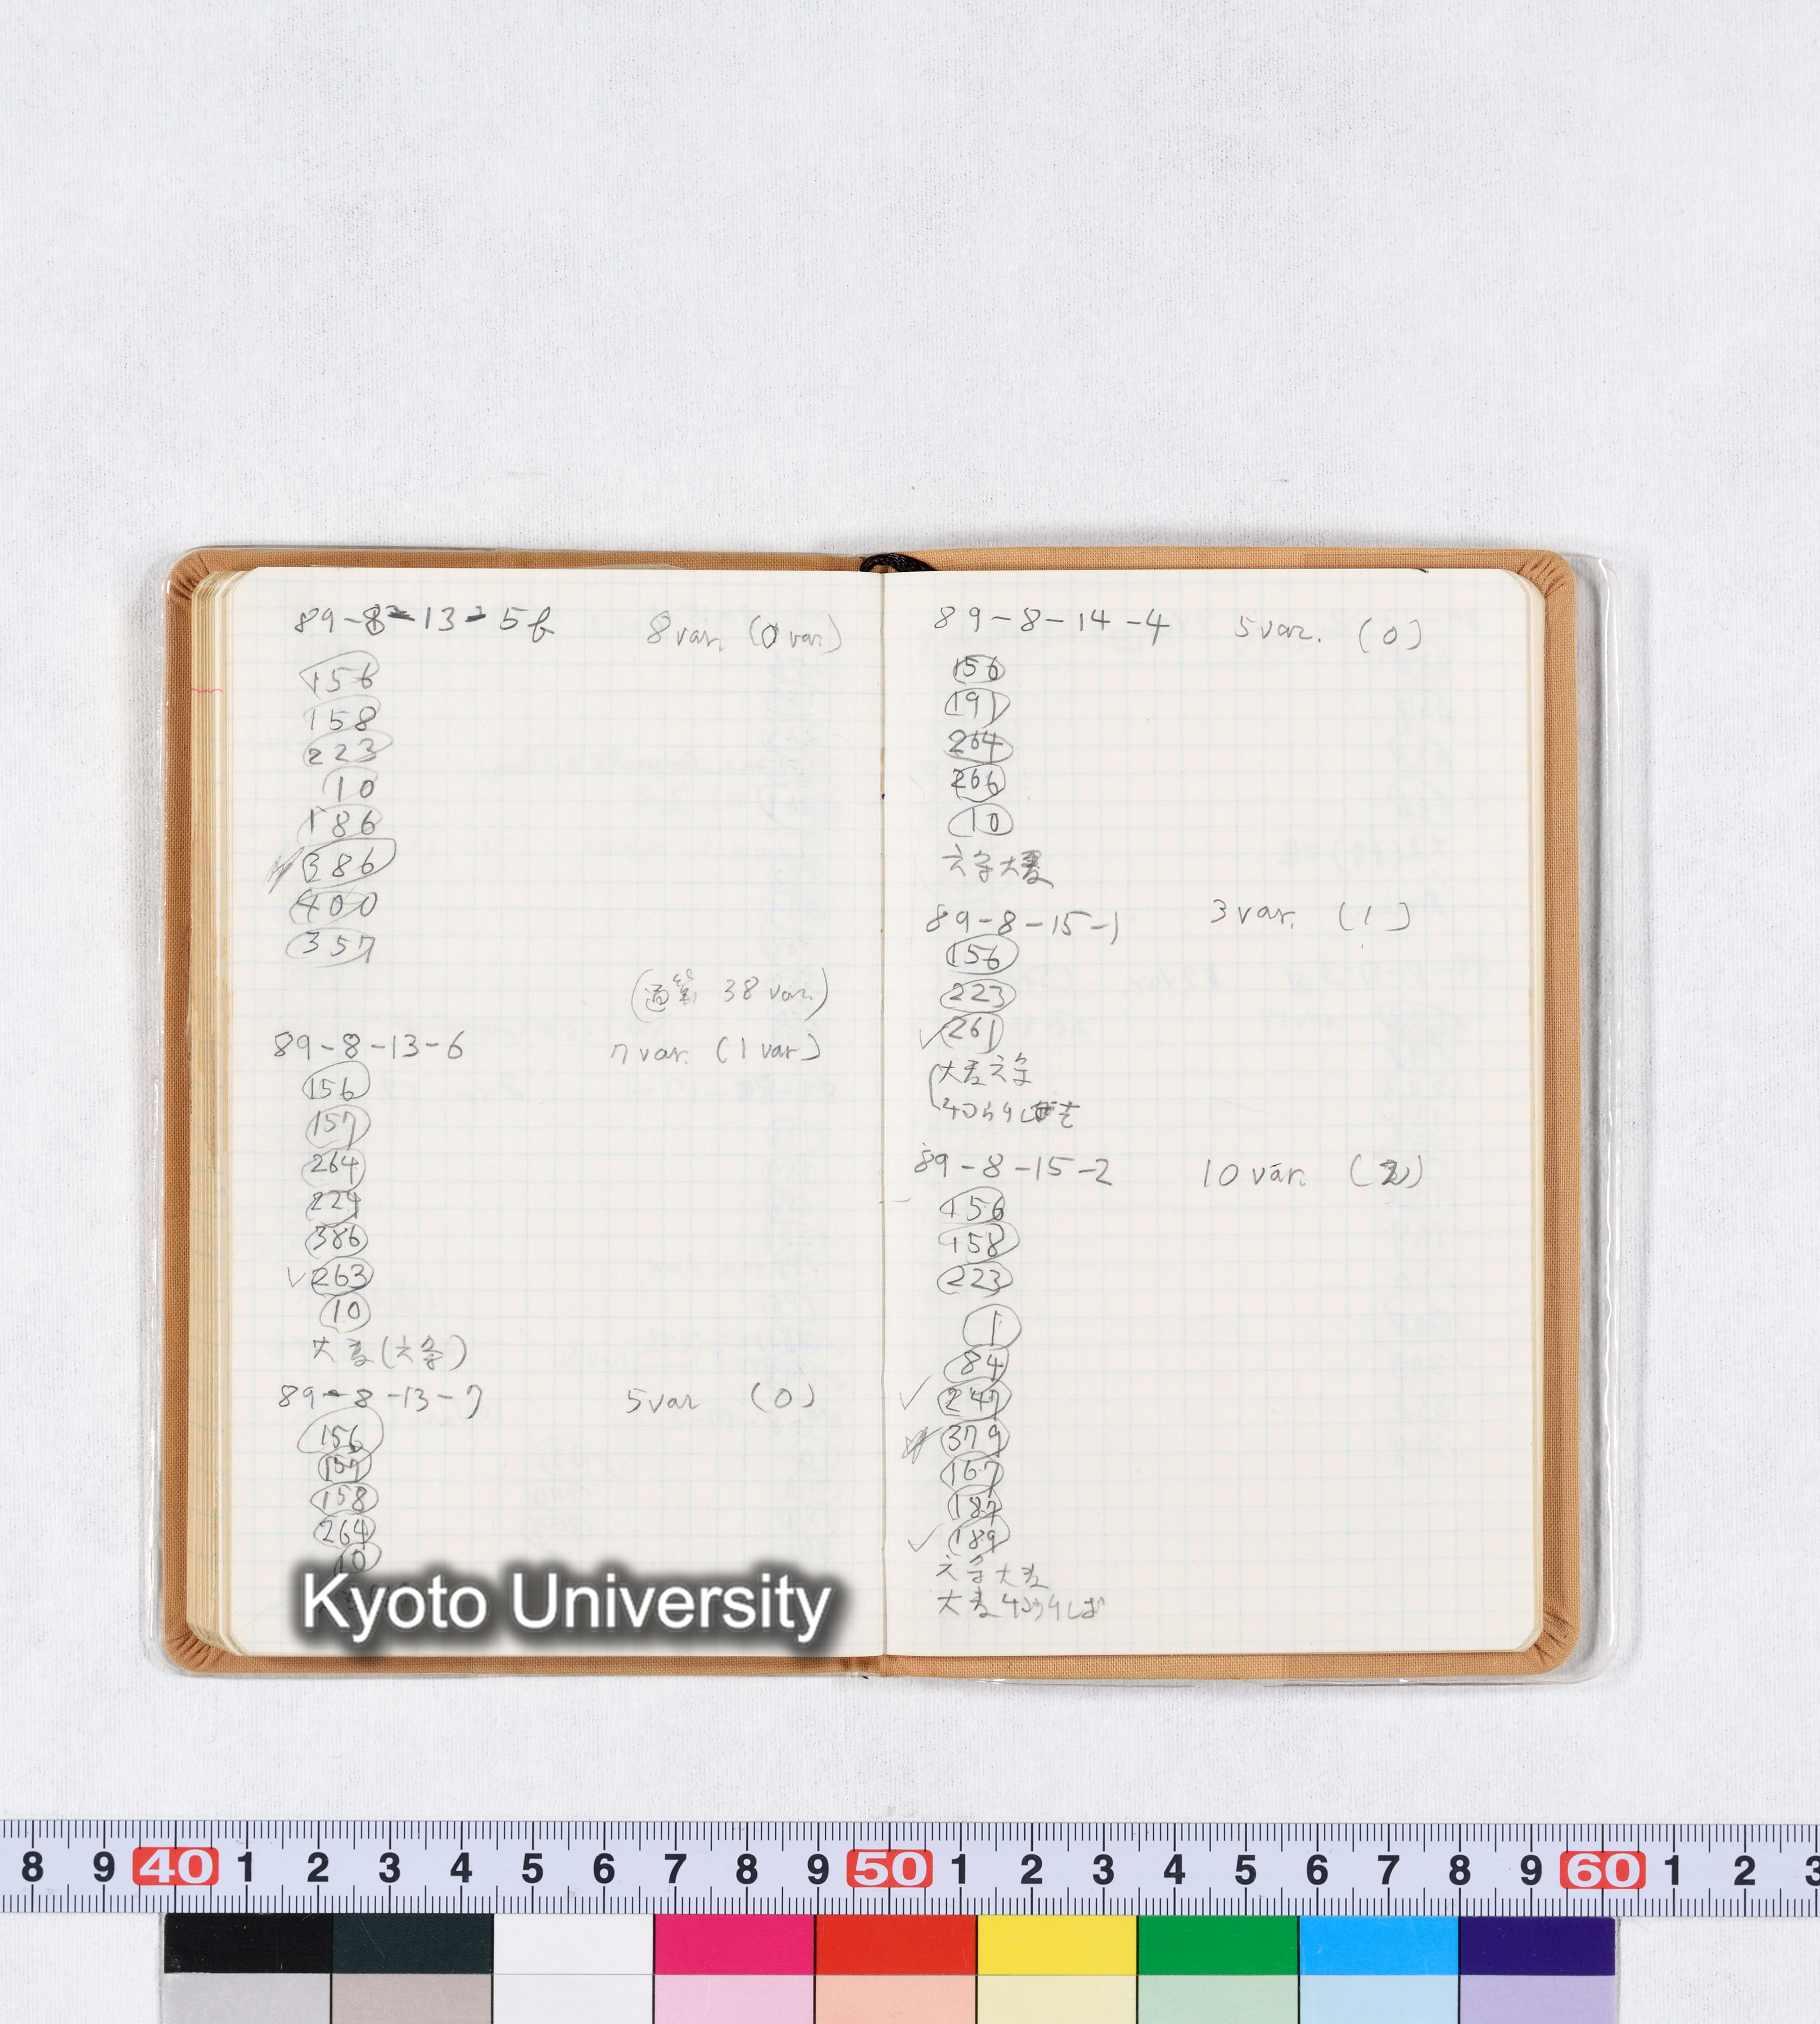 89-8-13-5b 8 var. (0 var.)
156
158
223
10
186
386
400
357
38 var.)
89-8-13-6 7 var. (1 var)
156
157
264
229
386
✓263
10
大麦(六条)
89-8-13-7 5 var (0)
156
157
158
264
10
89-8-14-4 5 var. (0)
156
191
264
266
10
六条大麦
89-8-15-1 3 var. (1)
156
223
✓261
大麦六条
89-8-15-2 10 var. (2)
156
158
223
1
84
✓247
379
167
187
✓189
六条大麦
大麦
Kyoto University
8 9 40 1 2 3 4 5 6 7 8 9 50 1 2 3 4 5 6 7 8 9 60 1 2 3